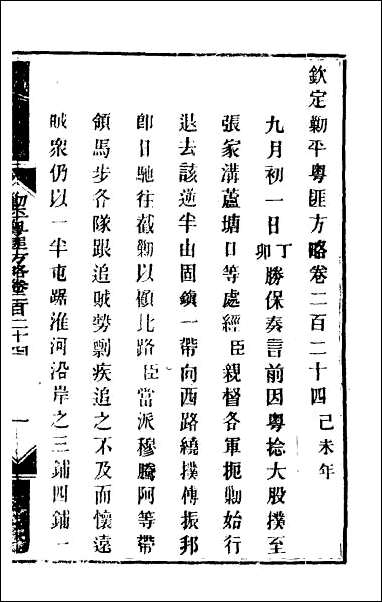 欽定勦平粵匪方略卷二百二十四 己未年
九月初一日丁卯勝保奏言前因粵捻大股撲至
張家溝蘆塘口等處經臣親督各軍扼勦始行
退去該逆半由固鎮一帶向西路繞撲傅振邦
卽日馳往截勦以顧北路臣當派穆騰阿等帶
領馬步各隊跟追賊勢剽疾追之不及而懷遠
賊衆仍以一半屯踞淮河沿岸之三鋪四鋪一
勦平粵匪方略卷二百二十四
一